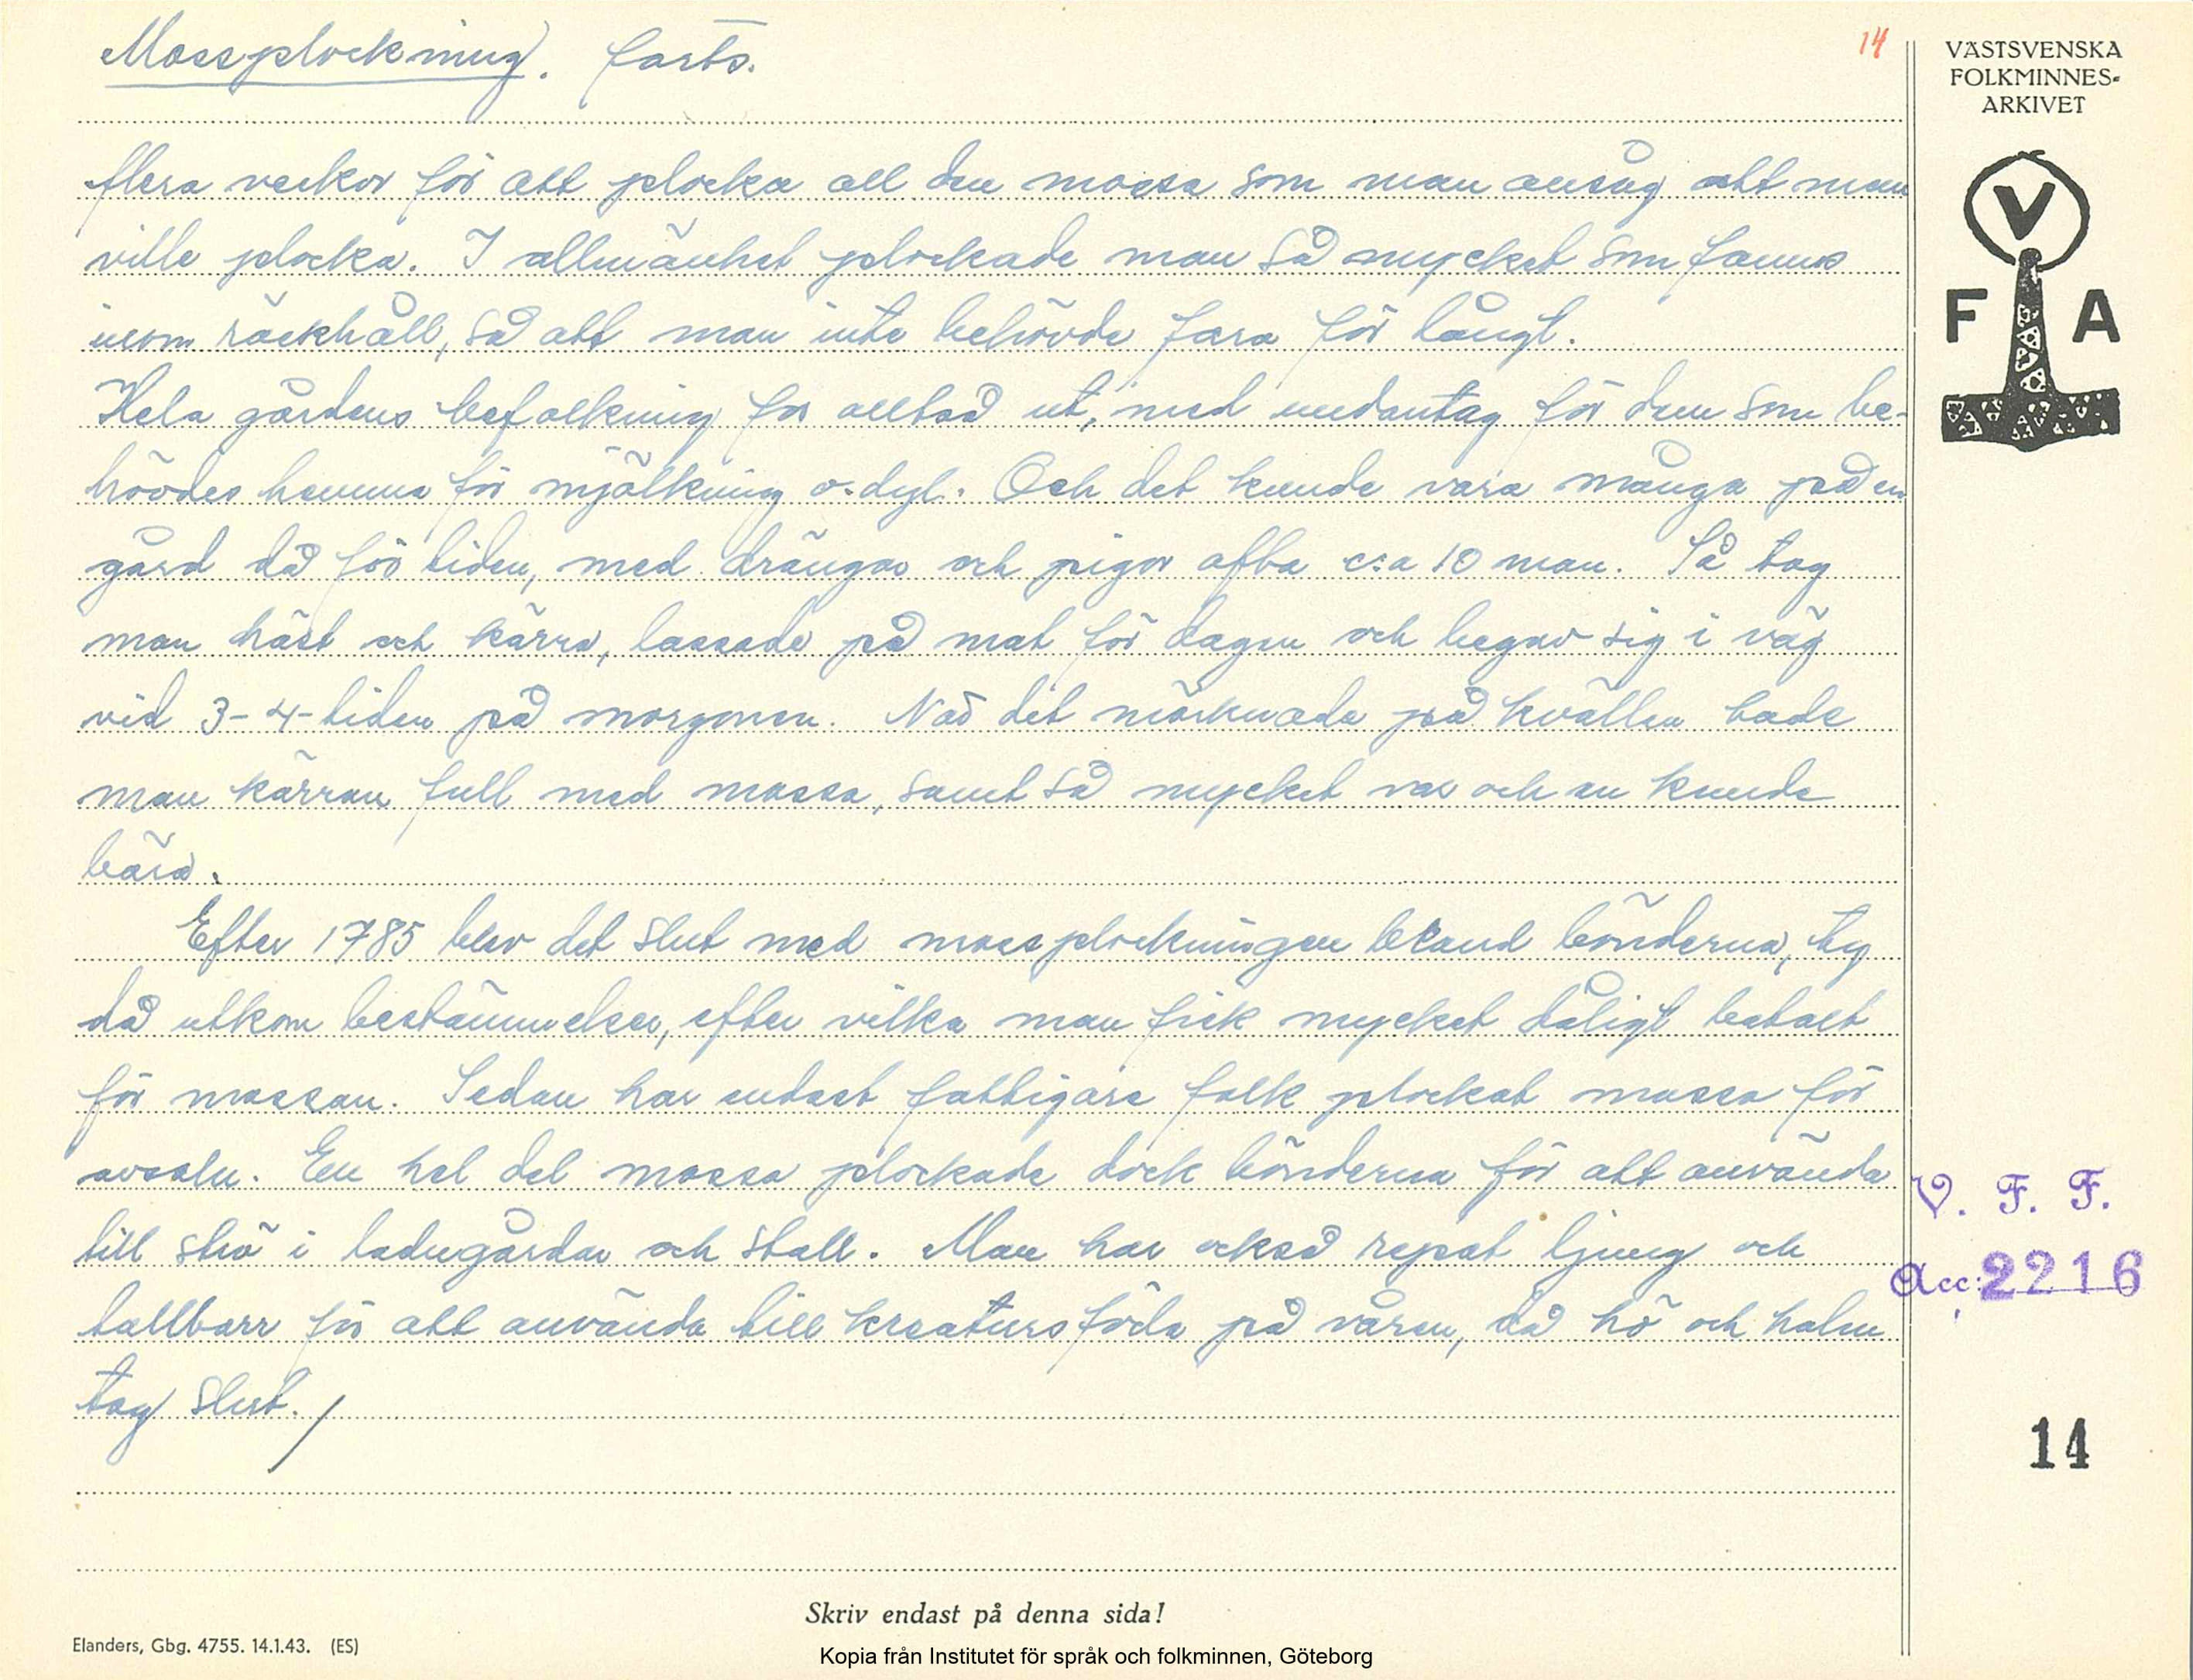 Mossplockning. forts.
14
VÄSTSVENSKA
FOLKMINNES-
ARKIVET
V
F A
flera veckor för att plocka all den mossa som man ansåg att man
ville plocka. I allmänhet plockade man så mycket som fanns
inom räckhåll, så att man inte behövde fara för långt.
Hela gårdens befolkning for alltså ut, med undantag för dem som be-
hövdes hemma för mjölkning o.dyl. Och det kunde vara många på en
gård då för tiden, med drängar och pigor ofta c:a 10 man. Så tog
man häst och kärra, lassade på mat för dagen och begav sig i väg
vid 3-4-tiden på morgonen. När det mörknade på kvällen hade
man kärran full med mossa, samt så mycket var och en kunde
bära.
Efter 1785 blev det slut med mossplockningen bland bönderna, ty
då utkom bestämmelser, efter vilka man fick mycket dåligt betalt
för mossan. Sedan har endast fattigare folk plockat mossa för
avsalu. En hel del mossa plockade dock bönderna för att använda
till strö i ladugårdar och stall. Man har också repat ljung och
tallbarr för att använda till kreatursföda på våren, då hö och halm
tog slut. /
V. F. F.
Acc: 2216
14
Skriv endast på denna sida!
Elanders, Gbg. 4755. 14.1.43. (ES)
Kopia från Institutet för språk och folkminnen, Göteborg